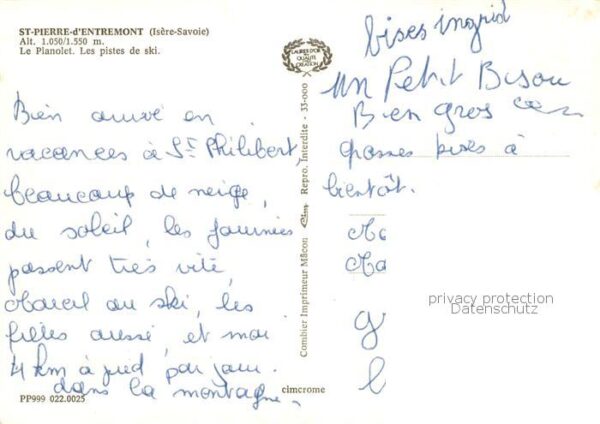 ST-PIERRE-d'ENTREMONT (Isère-Savoie)
Alt. 1.050/1.550 m.
Le Planolet. Les pistes de ski.
LAURÉS D'OR
QUALITÉ
CRÉATION
Bien arrivé en
vacances à St Philibert,
beaucoup de neige,
du soleil, les journées
passent très vite,
au ski, les
filles aussi, et moi
4 km à pied par jour.
dans la montagne.
PP999 022.0025
Combier Imprimeur Mâcon Cim Repro. Interdite - 33-000
cimcrome
bises ingrid
un Petit Bisou
Bien gros
grosses bises à
bientôt.
privacy protection
Datenschutz
g
l